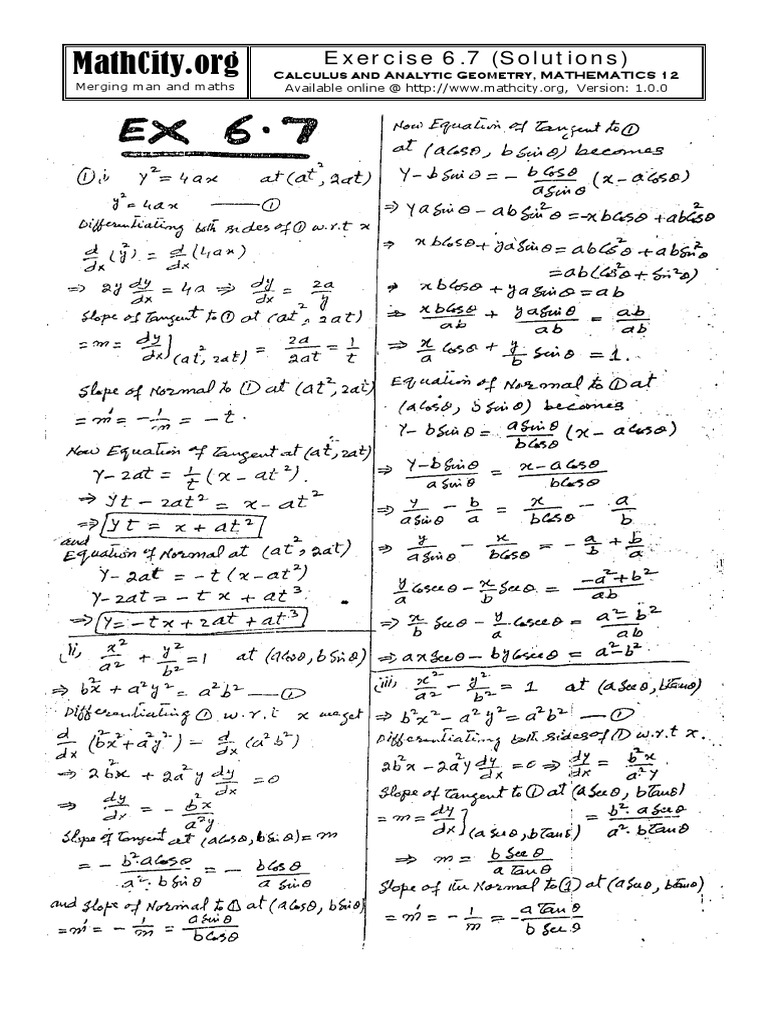 MathCity.org
Merging man and maths
Exercise 6.7 (Solutions)
CALCULUS AND ANALYTIC GEOMETRY, MATHEMATICS 12
Available online @ http://www.mathcity.org, Version: 1.0.0
EX 6.7
① i) y² = 4ax at (at², 2at)
y² = 4ax —— ①
Differentiating both sides of ① w.r.t x
d/dx (y²) = d/dx (4ax)
⇒ 2y dy/dx = 4a ⇒ dy/dx = 2a/y
Slope of Tangent to ① at (at², 2at)
= m = dy/dx](at², 2at) = 2a/2at = 1/t
Slope of Normal to ① at (at², 2at)
= m' = -1/m = -t.
Now Equation of Tangent at (at², 2at)
y-2at = 1/t (x-at²).
⇒ yt - 2at² = x - at²
⇒ yt = x + at²
and
Equation of Normal at (at², 2at)
y-2at = -t(x-at²)
y-2at = -tx + at³
⇒ y = -tx + 2at + at³
ii, x²/a² + y²/b² = 1 at (acosθ, bSinθ)
⇒ b²x² + a²y² = a²b² —— ①
Differentiating ① w.r.t x we get
d/dx (b²x² + a²y²) = d/dx (a²b²)
⇒ 2b²x + 2a²y dy/dx = 0
⇒ dy/dx = - b²x/a²y
Slope of Tangent at (aCosθ, bSinθ) = m
= - b².aCosθ/a².bSinθ = - bCosθ/aSinθ
and slope of Normal to ① at (aCosθ, bSinθ)
= m' = - 1/m = aSinθ/bCosθ
Now Equation of Tangent to ①
at (aCosθ, bSinθ) becomes
y-bSinθ = - bCosθ/aSinθ (x-aCosθ)
⇒ yaSinθ - abSin²θ = -xbCosθ + abCos²θ
⇒ xbCosθ + yaSinθ = abCos²θ + abSin²θ
= ab(Cos²θ + Sin²θ)
⇒ xbCosθ + yaSinθ = ab
⇒ xbCosθ/ab + yaSinθ/ab = ab/ab
⇒ x/a Cosθ + y/b Sinθ = 1.
Equation of Normal to ① at
(aCosθ, bSinθ) becomes
y-bSinθ = aSinθ/bCosθ (x-aCosθ)
⇒ y-bSinθ/aSinθ = x-aCosθ/bCosθ
⇒ y/aSinθ - b/a = x/bCosθ - a/b
⇒ y/aSinθ - x/bCosθ = - a/b + b/a
y/a Cosecθ - x/b Secθ = -a²+b²/ab
⇒ x/b Secθ - y/a.Cosecθ = a²-b²/ab
⇒ axSecθ - byCosecθ = a²-b².
iii, x²/a² - y²/b² = 1 at (aSecθ, btanθ)
⇒ b²x² - a²y² = a²b² —— ①
Differentiating both sides of ① w.r.t x.
2b²x - 2a²y dy/dx = 0 ⇒ dy/dx = b²x/a²y
Slope of Tangent to ① at (aSecθ, btanθ)
= m = dy/dx](aSecθ, btanθ) = b².aSecθ/a².btanθ
⇒ m = bSecθ/atanθ
Slope of the Normal to ① at (aSecθ, btanθ)
= m' = - 1/m = - atanθ/bSecθ